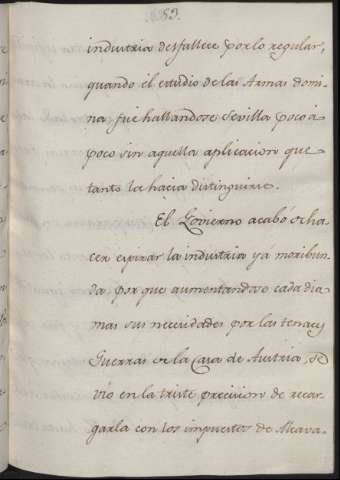 53.
industria desfallece por lo regular,
quando el estudio de las Armas domi-
na, fue hallandose Sevilla poco à
poco sin aquella aplicacion que
tanto la hacia distinguirse.
El Govierno acabó de ha-
cer espirar la industria yá moribun-
da porque aumentandose cada dia
mas sus necesidades por las tenaces
Guerras de la Casa de Austria, se
vio en la triste precision de recar-
garla con los impuestos de Alcava-